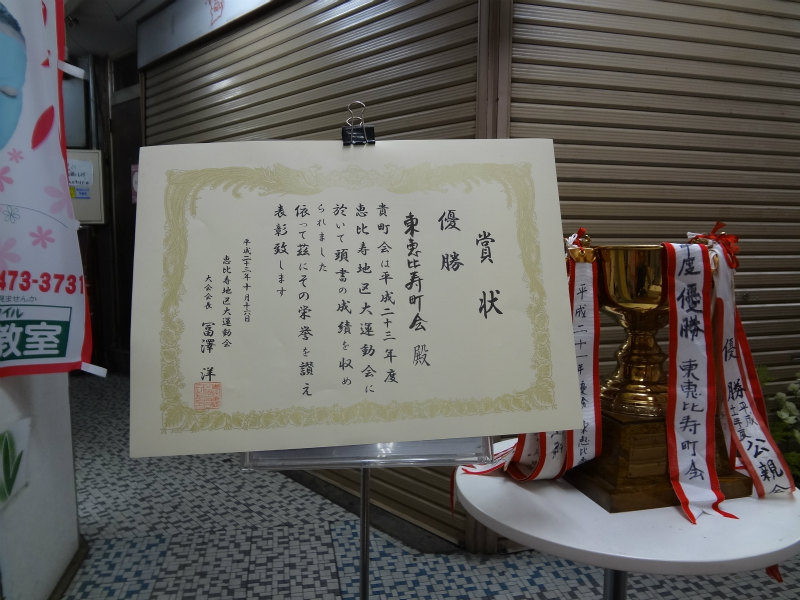 賞状
優勝
東恵比寿町会 殿
貴町会は平成二十三年度
恵比寿地区大運動会に
於いて頭書の成績を収め
られました
依って茲にその栄誉を讃え
表彰致します
平成二十三年十月十六日
恵比寿地区大運動会
大会会長 冨澤 洋
473-3731
教室
平成二十一年度優勝 東恵比寿
度優勝 東恵比寿町会
優勝 平成
公親会